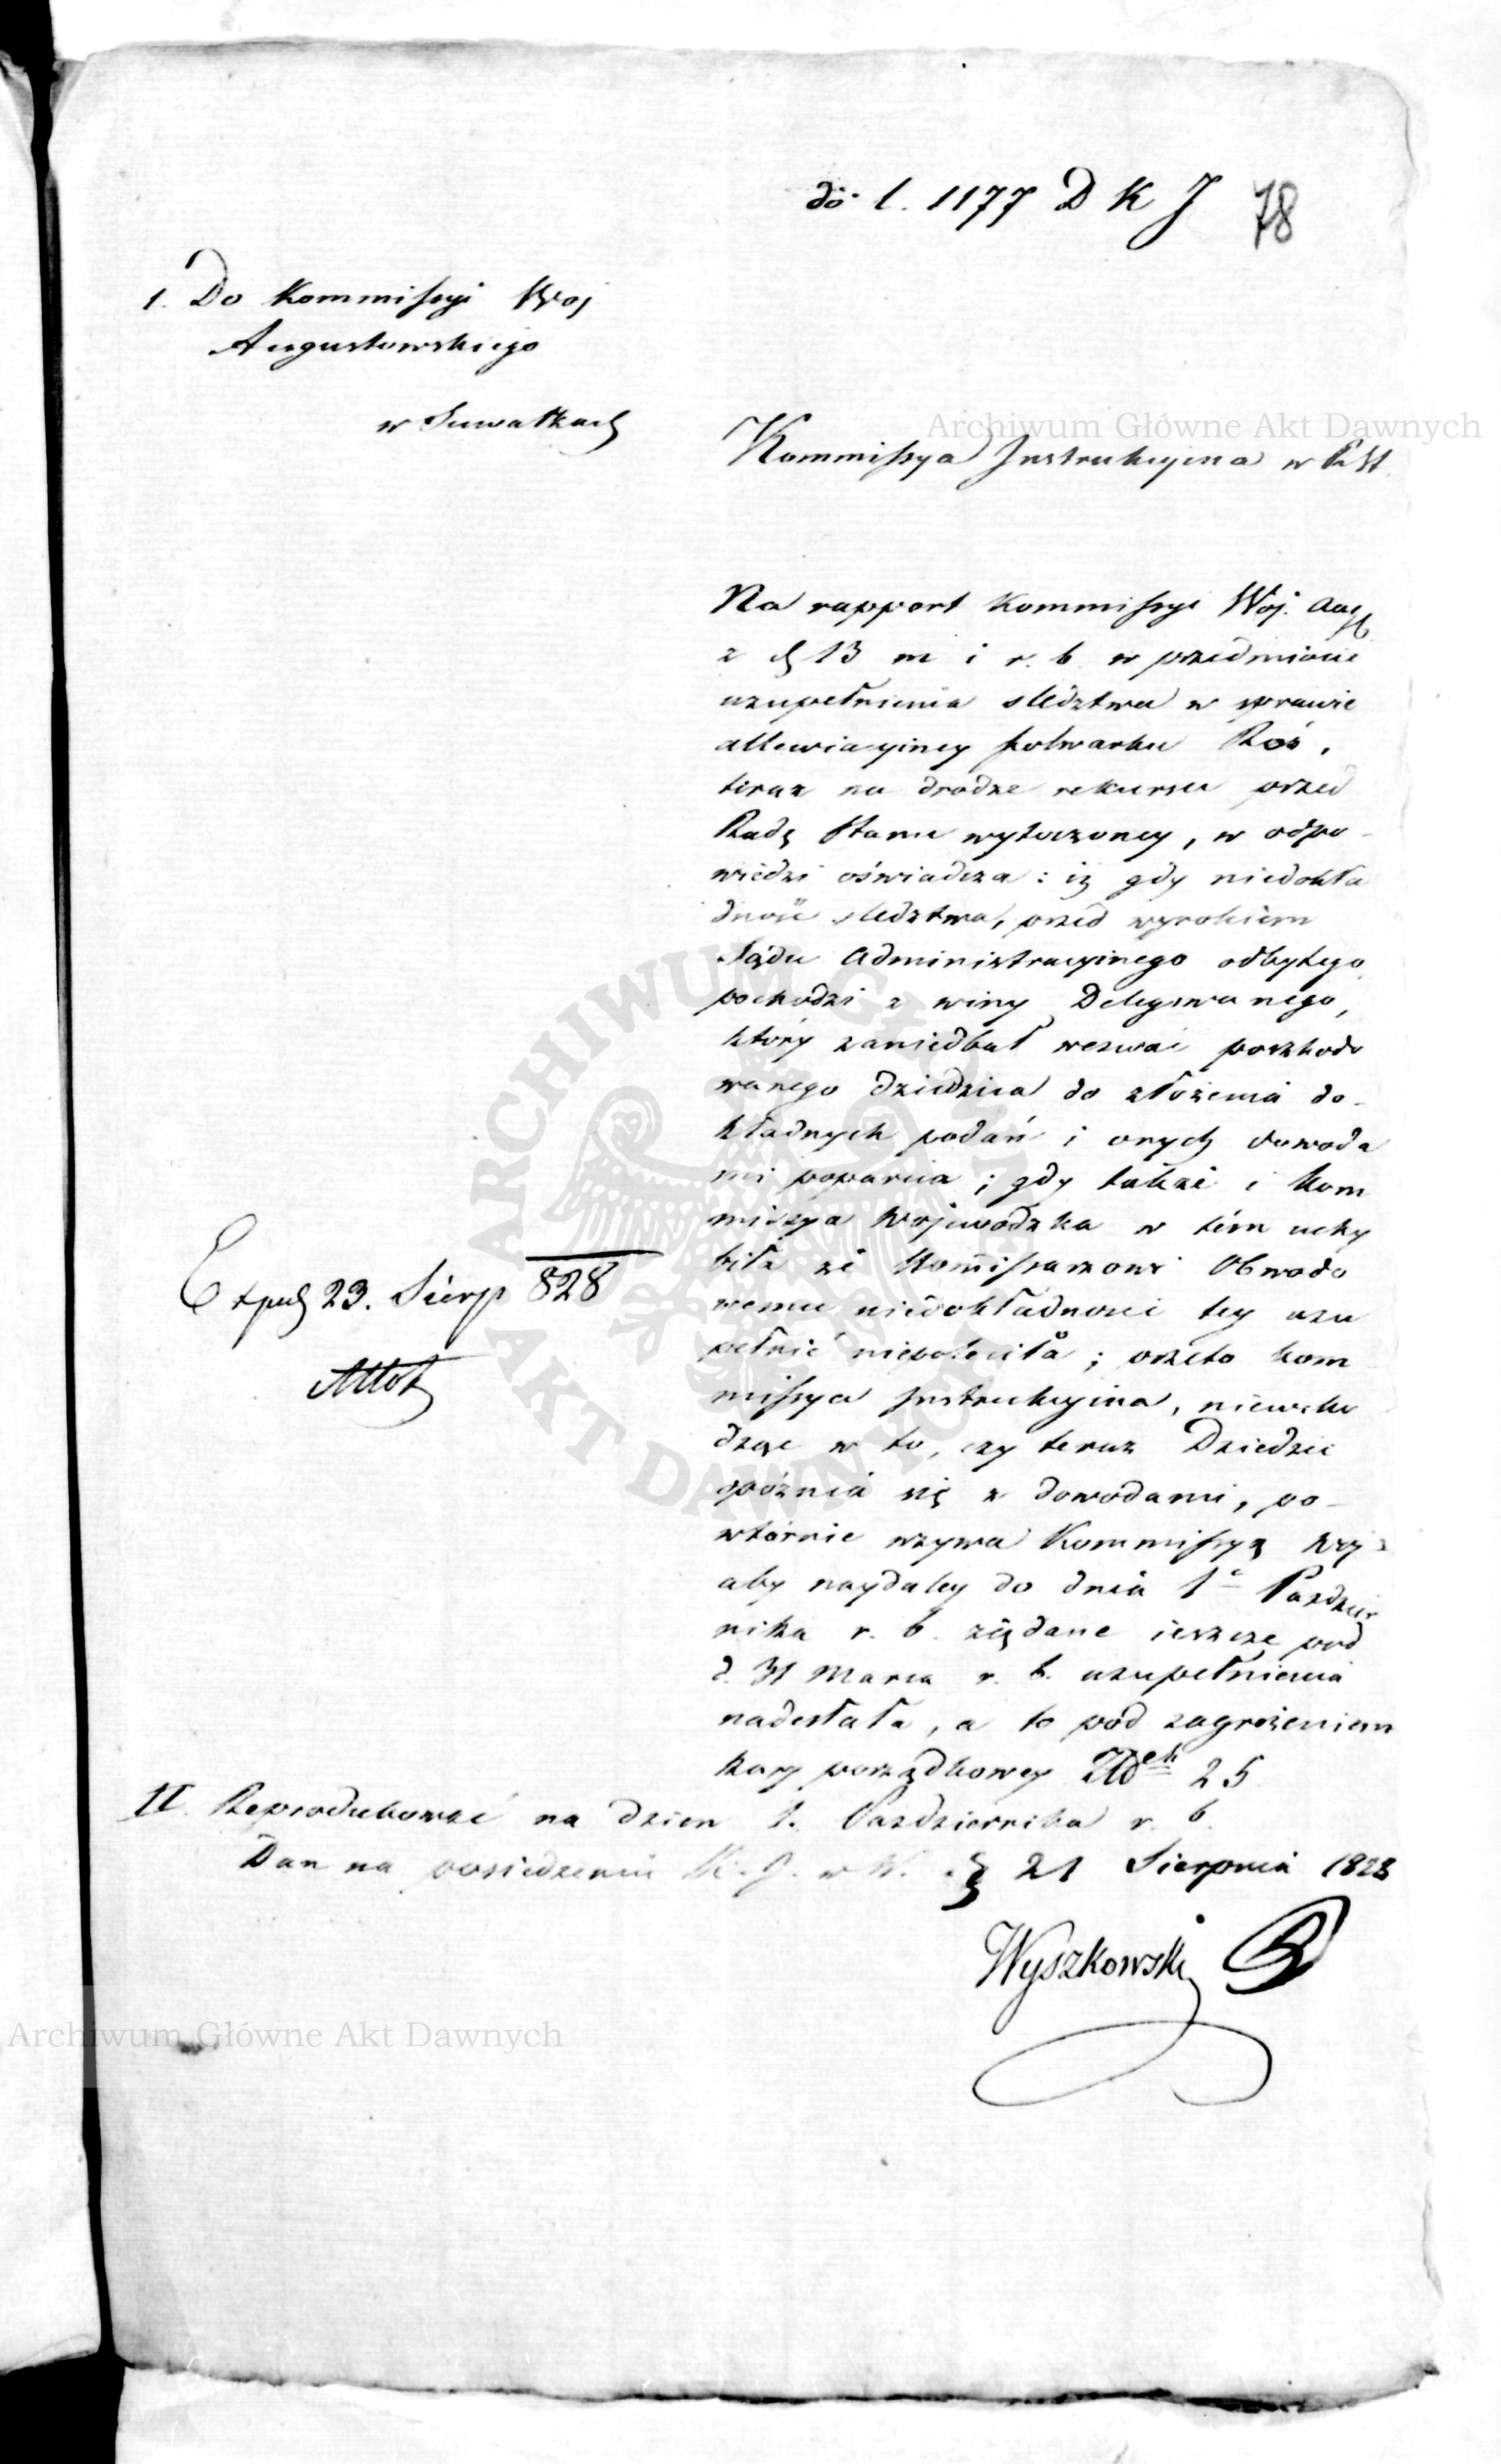 do l. 1177 D K J 78
1. Do Kommissyi Woj
Augustowskiego
w Suwałkach
Archiwum Główne Akt Dawnych
Kommissya Instrukcyina w R. St.
Na rapport Kommissyi Woj. Aug
z d 13 m i r. b. w przedmiocie
uzupełnienia sledztwa w sprawie
allewiacyiney folwarku Roś,
teraz na drodze rekursu przed
Radę Stanu wytoczoney, w odpo-
wiedzi oświadcza: iż gdy niedokła
dność sledztwa, przed wyrokiem
Sądu Administracyinego odbytego,
pochodzi z winy Delegowanego,
który zaniedbał wezwać poszkodo
wanego dziedzica do złożenia do-
kładnych podań i onych dowoda
mi poparcia; gdy także i Kom
missya Wojewodzka w tém uchy
biła że Kommissarzowi Obwodo
wemu niedokładności tey uzu
pełnić niepoleciła; przeto Kom
missya Instrukcyina, niewcho
dząc w to, czy teraz Dziedzic
spóznia się z dowodami, po-
wtórnie wzywa Kommissyą
aby naydaley do dnia 1º Pazdzier
nika r. b. żądane ieszcze pod
d. 31 Marca r. b. uzupełnienia
nadesłała, a to pod zagrożeniem
kary porządkowey 25
II. Reprodukować na dzien 1. Pazdziernika r. b.
Dan na posiedzeniu K. J. w W. d 21 Sierpnia 1828
Exped 23. Sierp 828
Wyszkowski
ARCHIWUM GŁÓWNE
AKT DAWNYCH
Archiwum Główne Akt Dawnych